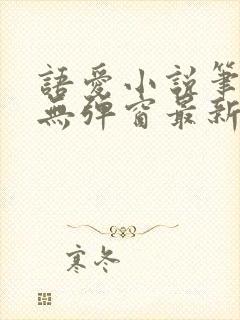 語愛小說筆
無彈窗最新
寒冬